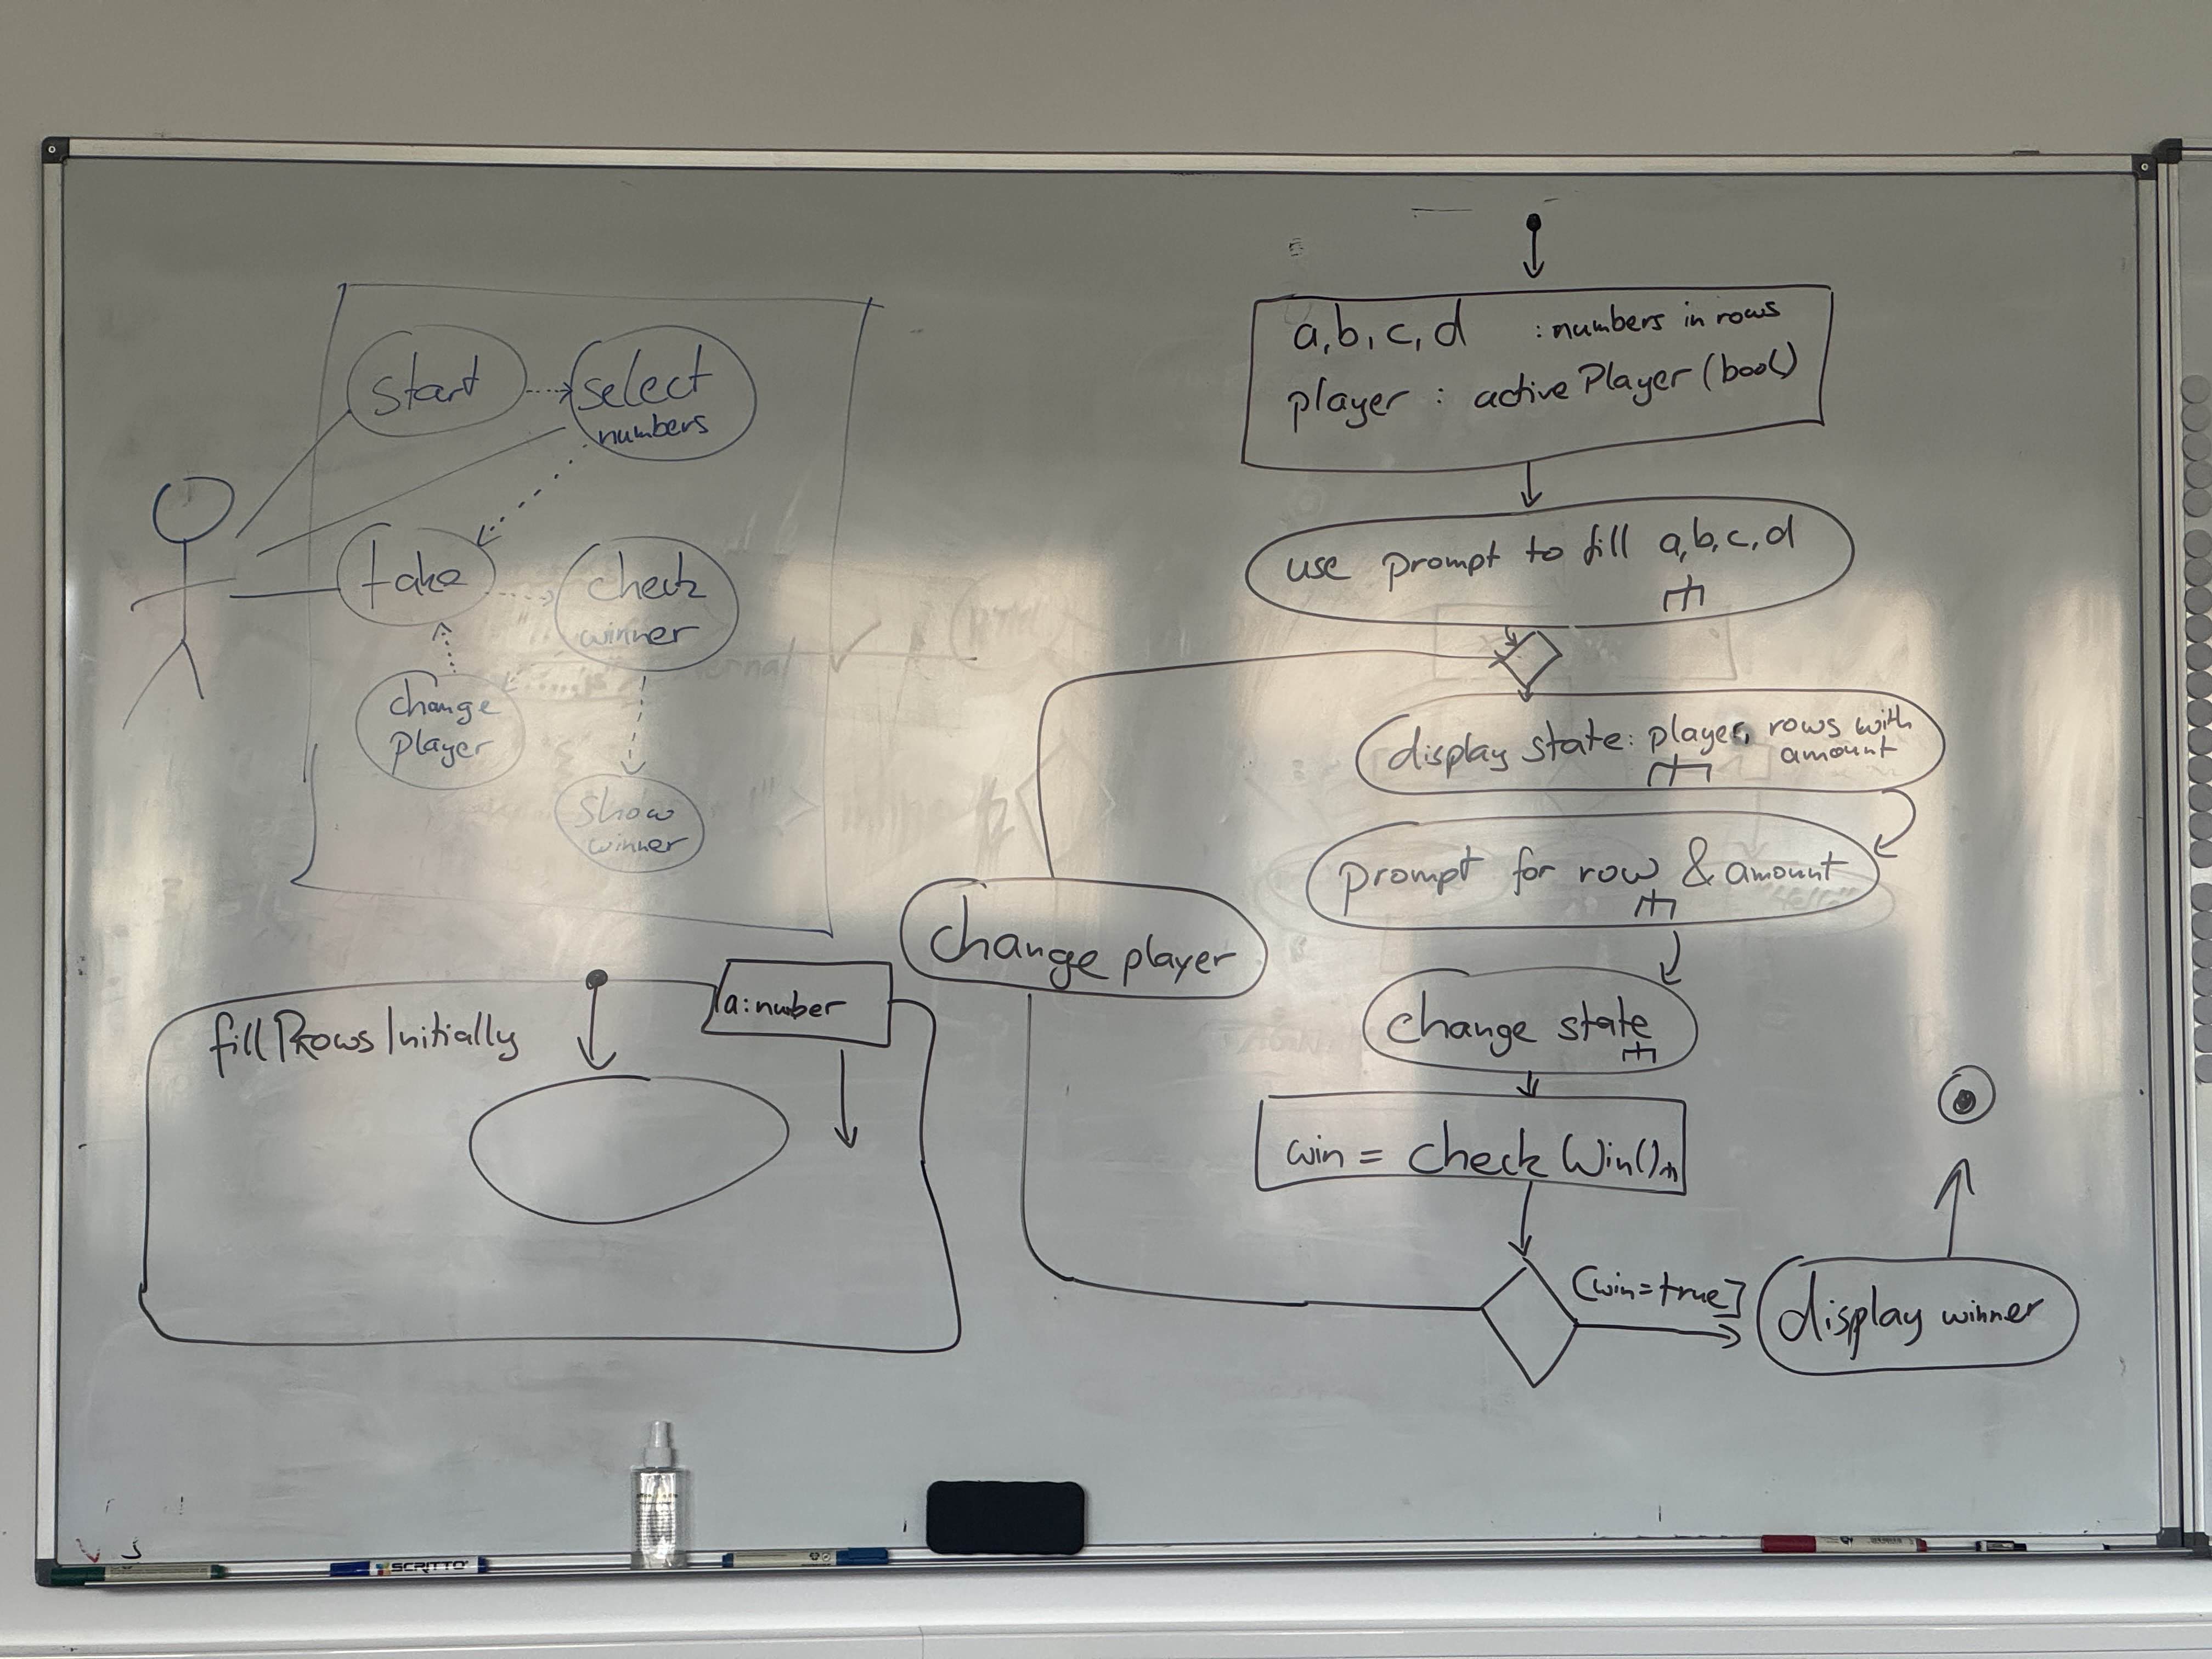 start
select
numbers
take
check
winner
change
player
show
winner
fillRowsInitially
a:number
a,b,c,d :numbers in rows
player : activePlayer (bool)
use prompt to fill a,b,c,d
display state: player, rows with
amount
prompt for row & amount
change state
win = checkWin()
[win=true]
display winner
change player
SCRITTO